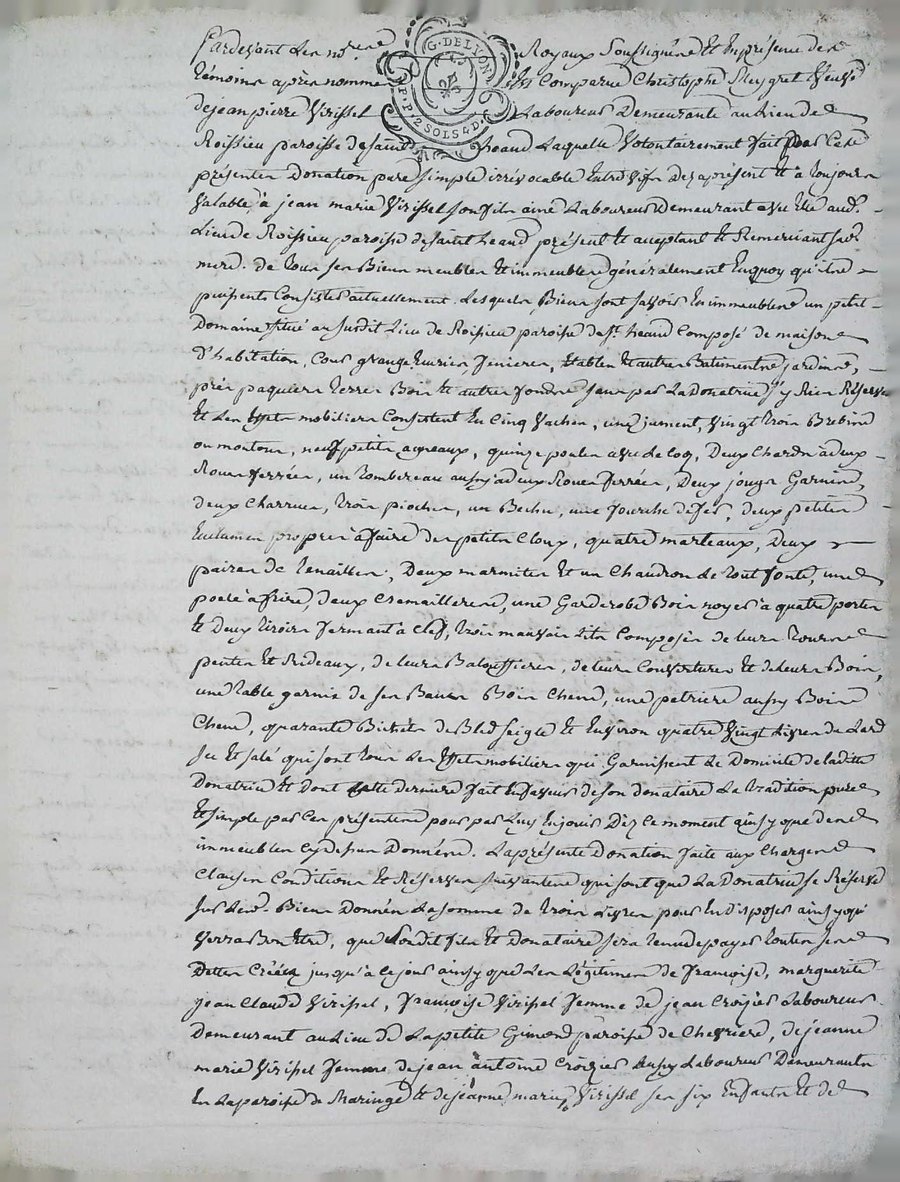 Pardevant Les no.res Royaux Soussignéns Et En présence des
témoins après nommés Est Comparue Christophe Meygret Veuve
de jean pierre Virissel Laboureur Demeurante au Lieu de
Roissieu paroisse de Saint heand Laquelle Volontairement fait par Ces
présentes Donation pure simple irrévocable Entrevifs Dez aprésent Et a toujours
Valable, à jean marie Virissel son fils ainé Laboureur Demeurant avec Elle aud.
Lieu de Roissieu paroisse de saint heand présent Et acceptant Et Remerciant sad.
mere. de tous ses Biens meubles Et immeubles généralement En quoy qu'ils
puissents Consister actuellement. Lesquels Biens sont savoir En immeubles un petit
Domaine situé au susdit Lieu de Roissieu paroisse de St. heand Composé de maison
D'habitation, Cour grange Ecuries fenieres, Etables Et autres Batiments jardins,
prés paquiers terres Bois Et autres fonds sans par La Donatrice s'y Rien Réserver
Et Les Effets mobiliers Consistent En Cinq Vaches, une jument, Vingt trois Brebis
ou moutons, neuf petits agneaux, quinze poules avec le coq, Deux Chards à deux
Roues ferrées, un tombereau aussy à deux Roues ferrées, Deux jougs Garnis,
deux Charrues, trois pioches, un Beche, une fourche de fer, deux petites
Enclumes propres à faire des petits Cloux, quatre marteaux, Deux
paires de tenailles, Deux marmites Et un Chaudron de tout fonte, une
poele à frire, deux Cremailleres, une Garderobe Bois noyer à quatre portes
Et Deux tiroirs fermant à Clef, trois mauvais Lits Composés de leurs tour
pentes Et Rideaux, de leurs Baloussieres, de leurs Couvertures Et de leurs Bois,
une table garnie de ses Bancs Bois Chene, une petriere aussy Bois
Chene, quarante Bichets de Bled seigle Et Environ quatre Vingt Livres de Lard
sec Et salé qui sont tous Les Effets mobiliers qui Garnissent Le Domicile de laditte
Donatrice Et Dont Cette derniere fait En faveur de son donataire La tradition pure
Et simple par Ces présentes pour par Luy En jouir Dez Ce moment ainsy que des
immeubles Cy dessus Donnés. La présente Donation faite aux Charges
Clauses Conditions Et Réserves suivantes qui sont que La Donatrice se Réserve
sur Lesd. Biens Donnés La somme de trois Livres pour En disposer ainsy qu'
Verra Bon Etre, que Sondit fils Et Donataire sera tenu de payer toutes ses
Dettes Créées jusqu'à ce jour ainsy que Les Légitimes de francoise, marguerite
jean Claude Virissel, françoise Virissel femme de jean Croizier Laboureur
Demeurant au Lieu de La petite Gimond paroisse de Chevriere, de jeanne
marie Virissel femme de jean antoine Croizier aussy Laboureur Demeurante
En La paroisse de Maringe Et de jeanne marie Virissel ses six Enfants Et de
G. DE LYON
P. P. 2 SOLS 4 D.